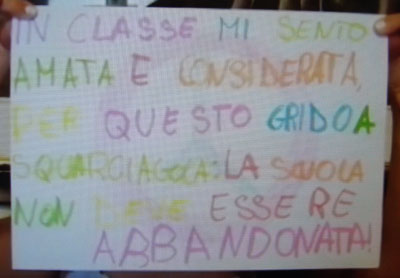 IN CLASSE MI SENTO
AMATA E CONSIDERATA,
PER QUESTO GRIDO A
SQUARCIAGOLA: LA SCUOLA
NON DEVE ESSERE
ABBANDONATA!